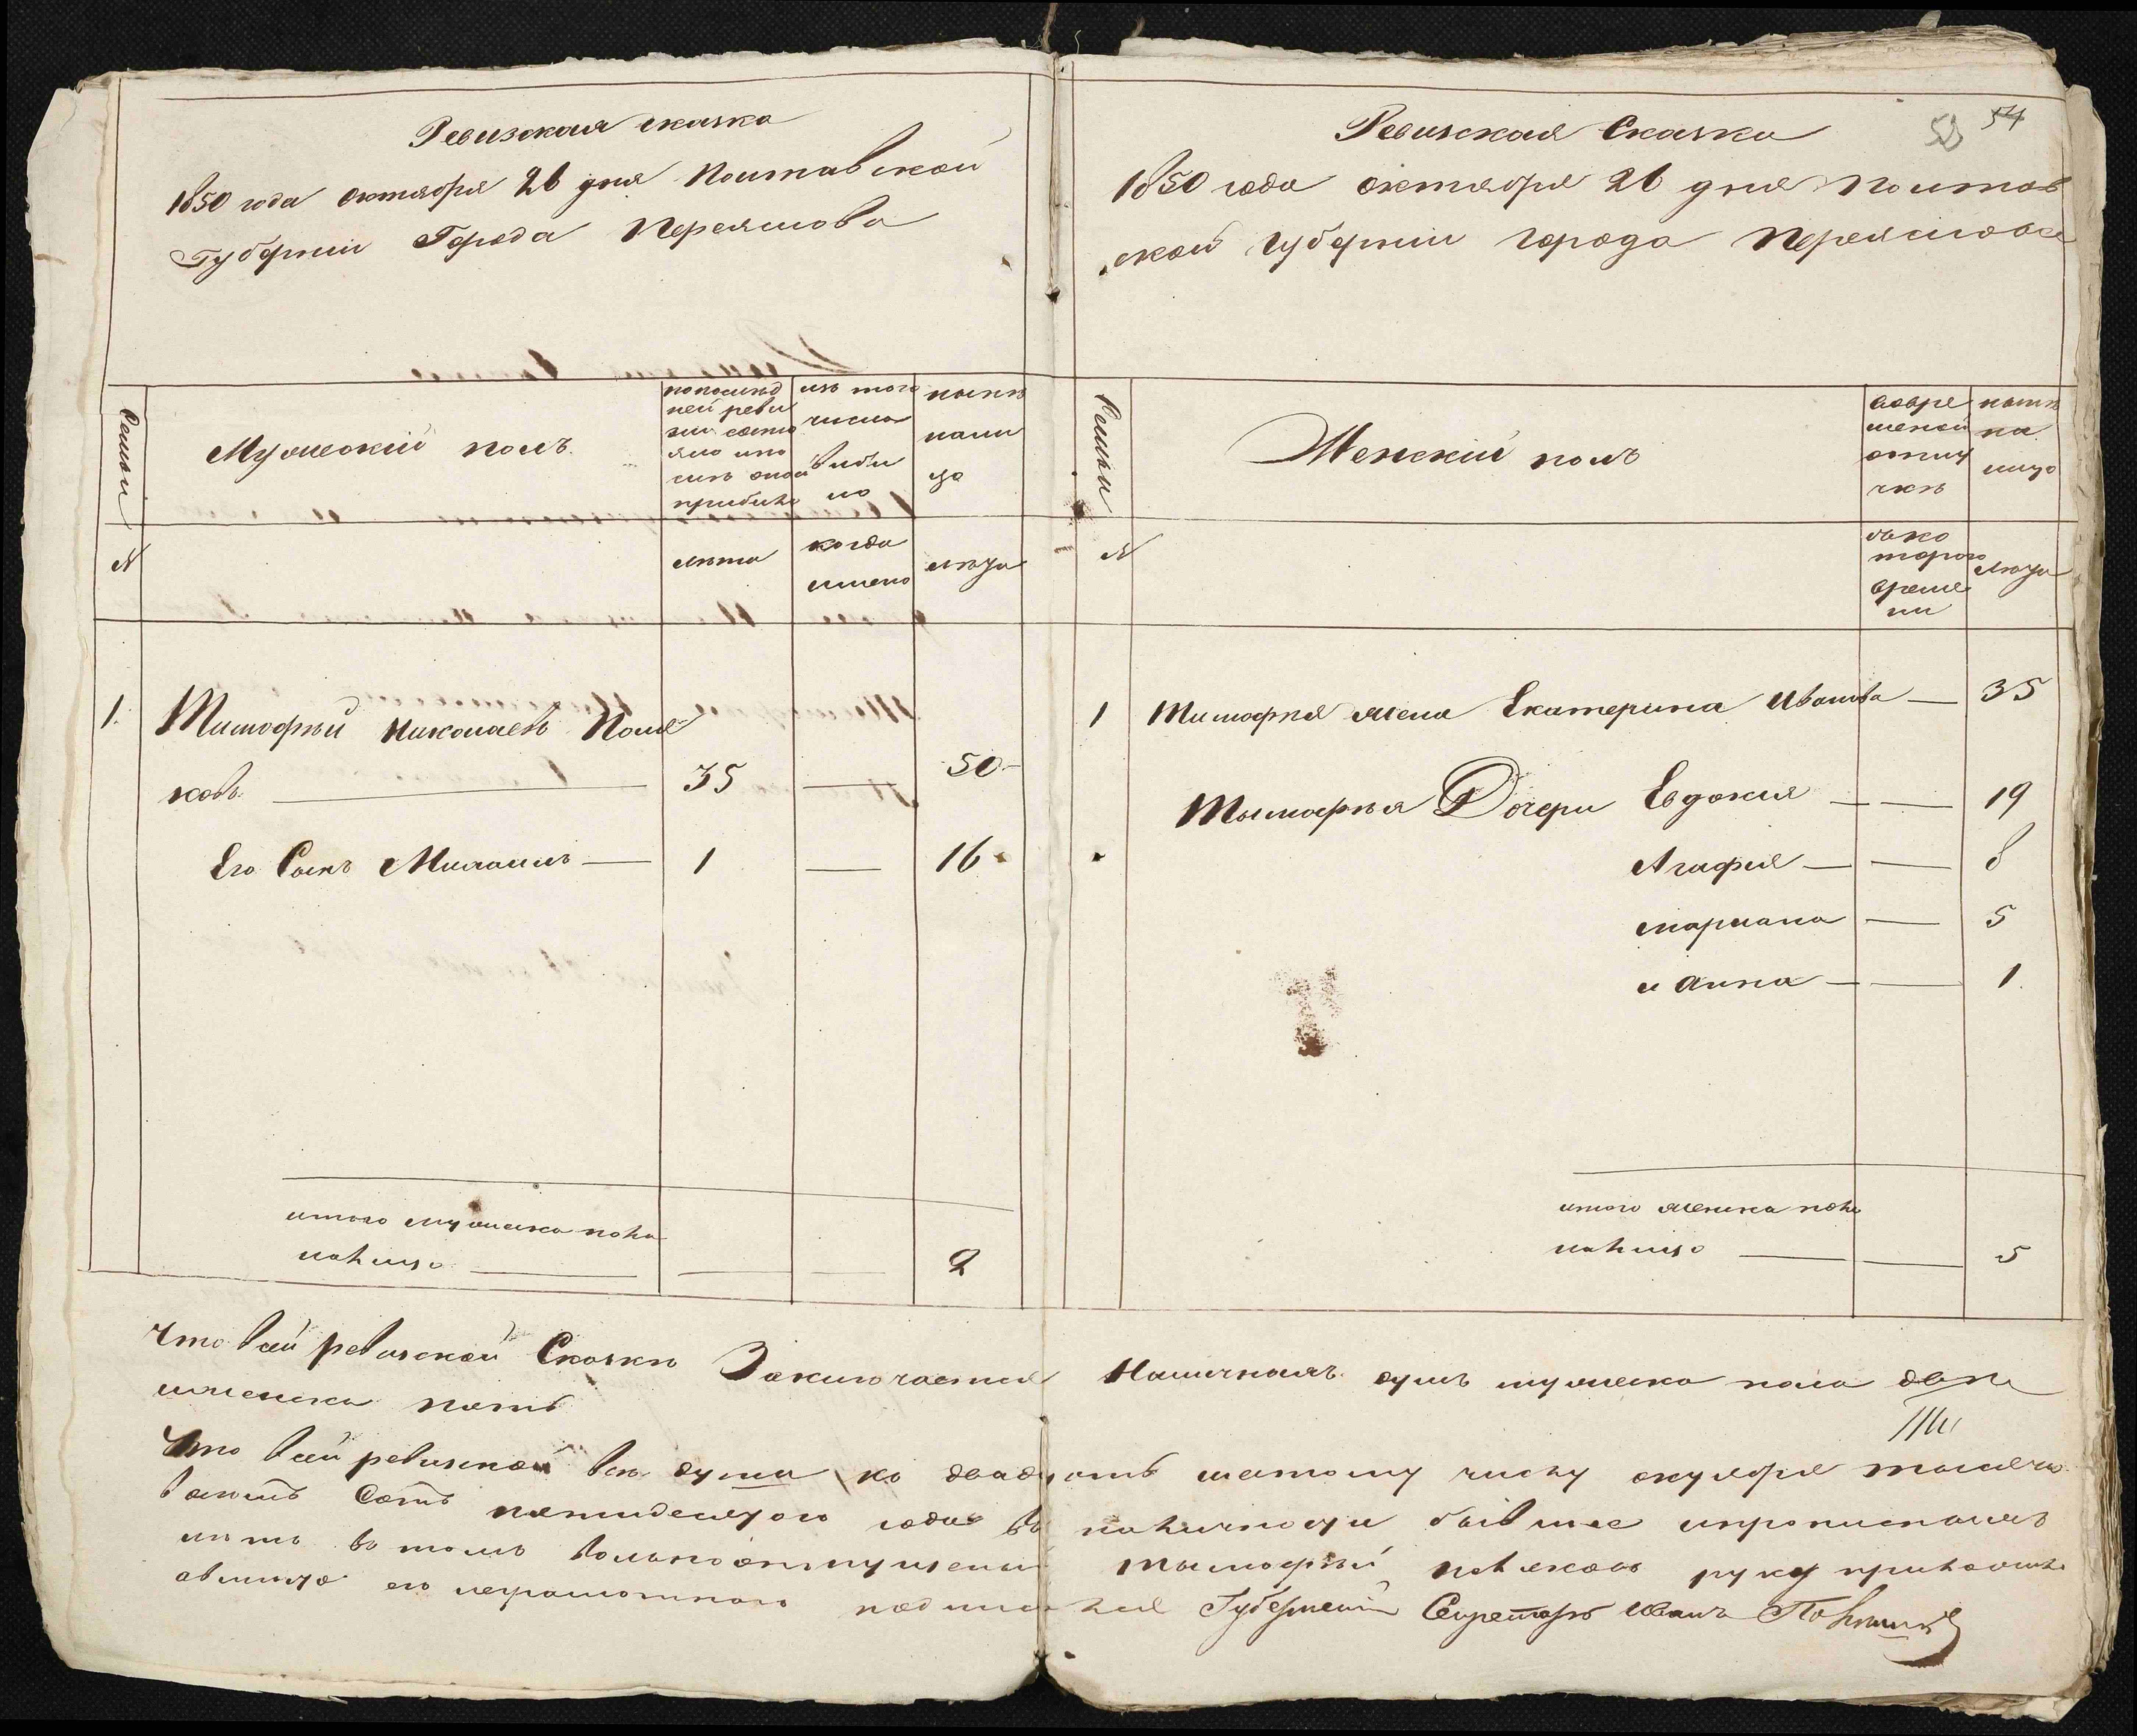 Ревизская сказка
1850 года октября 26 дня Полтавской
Губернии Города Переяслова
Семьи
Мужеский полъ
по послѣд
ней реви
зіи состо
яло и по
слѣ оной
прибыло
изъ того
числа
выбы
ло
нынѣ
нали
цо
№
лѣта
когда
имено
лѣта
1. Тимофѣй Николаевъ Поля
ковъ — 35 — 50
Его Сынъ Михаилъ — 1 — 16
итого мужеска пола
налицо — — — 2
53 54
Ревизская Сказка
1850 года октября 26 дня Полтав
ской губернии города Переяслова
Семьи
Женский полъ
во вре
меной
отлу
чкѣ
нынѣ
на
лицо
№
съ ко
торого
време
ни
лѣта
1 Тимофея жена Екатерина Иванова — 35
Тымофѣя Дочери Евдокия — — 19
Агафия — — 8
Мариана — 5
и Анна — — 1.
итого женска пола
налицо — — 5
Что в сей ревизской Сказкѣ Заключается Наличныхъ душъ мужеска пола две
и женска пять
Что в сей ревизской всѣ души ко двадцать шестому числу октября тысяча
восемь Сотъ пятидесятого года въ наличности бывшие и прописанные
въ томъ вольноотпущеный Тымофѣй Поляковъ руку приложилъ
а вмисто его неграмотного подписался Губернский Секретарь Иванъ